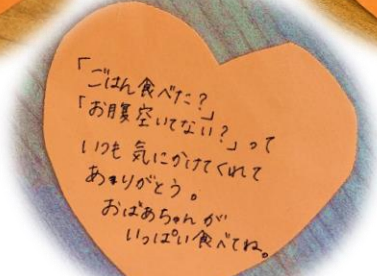 「ごはん食べた？」
「お腹空いてない？」って
いつも気にかけてくれて
ありがとう。
おばあちゃんが
いっぱい食べてね。